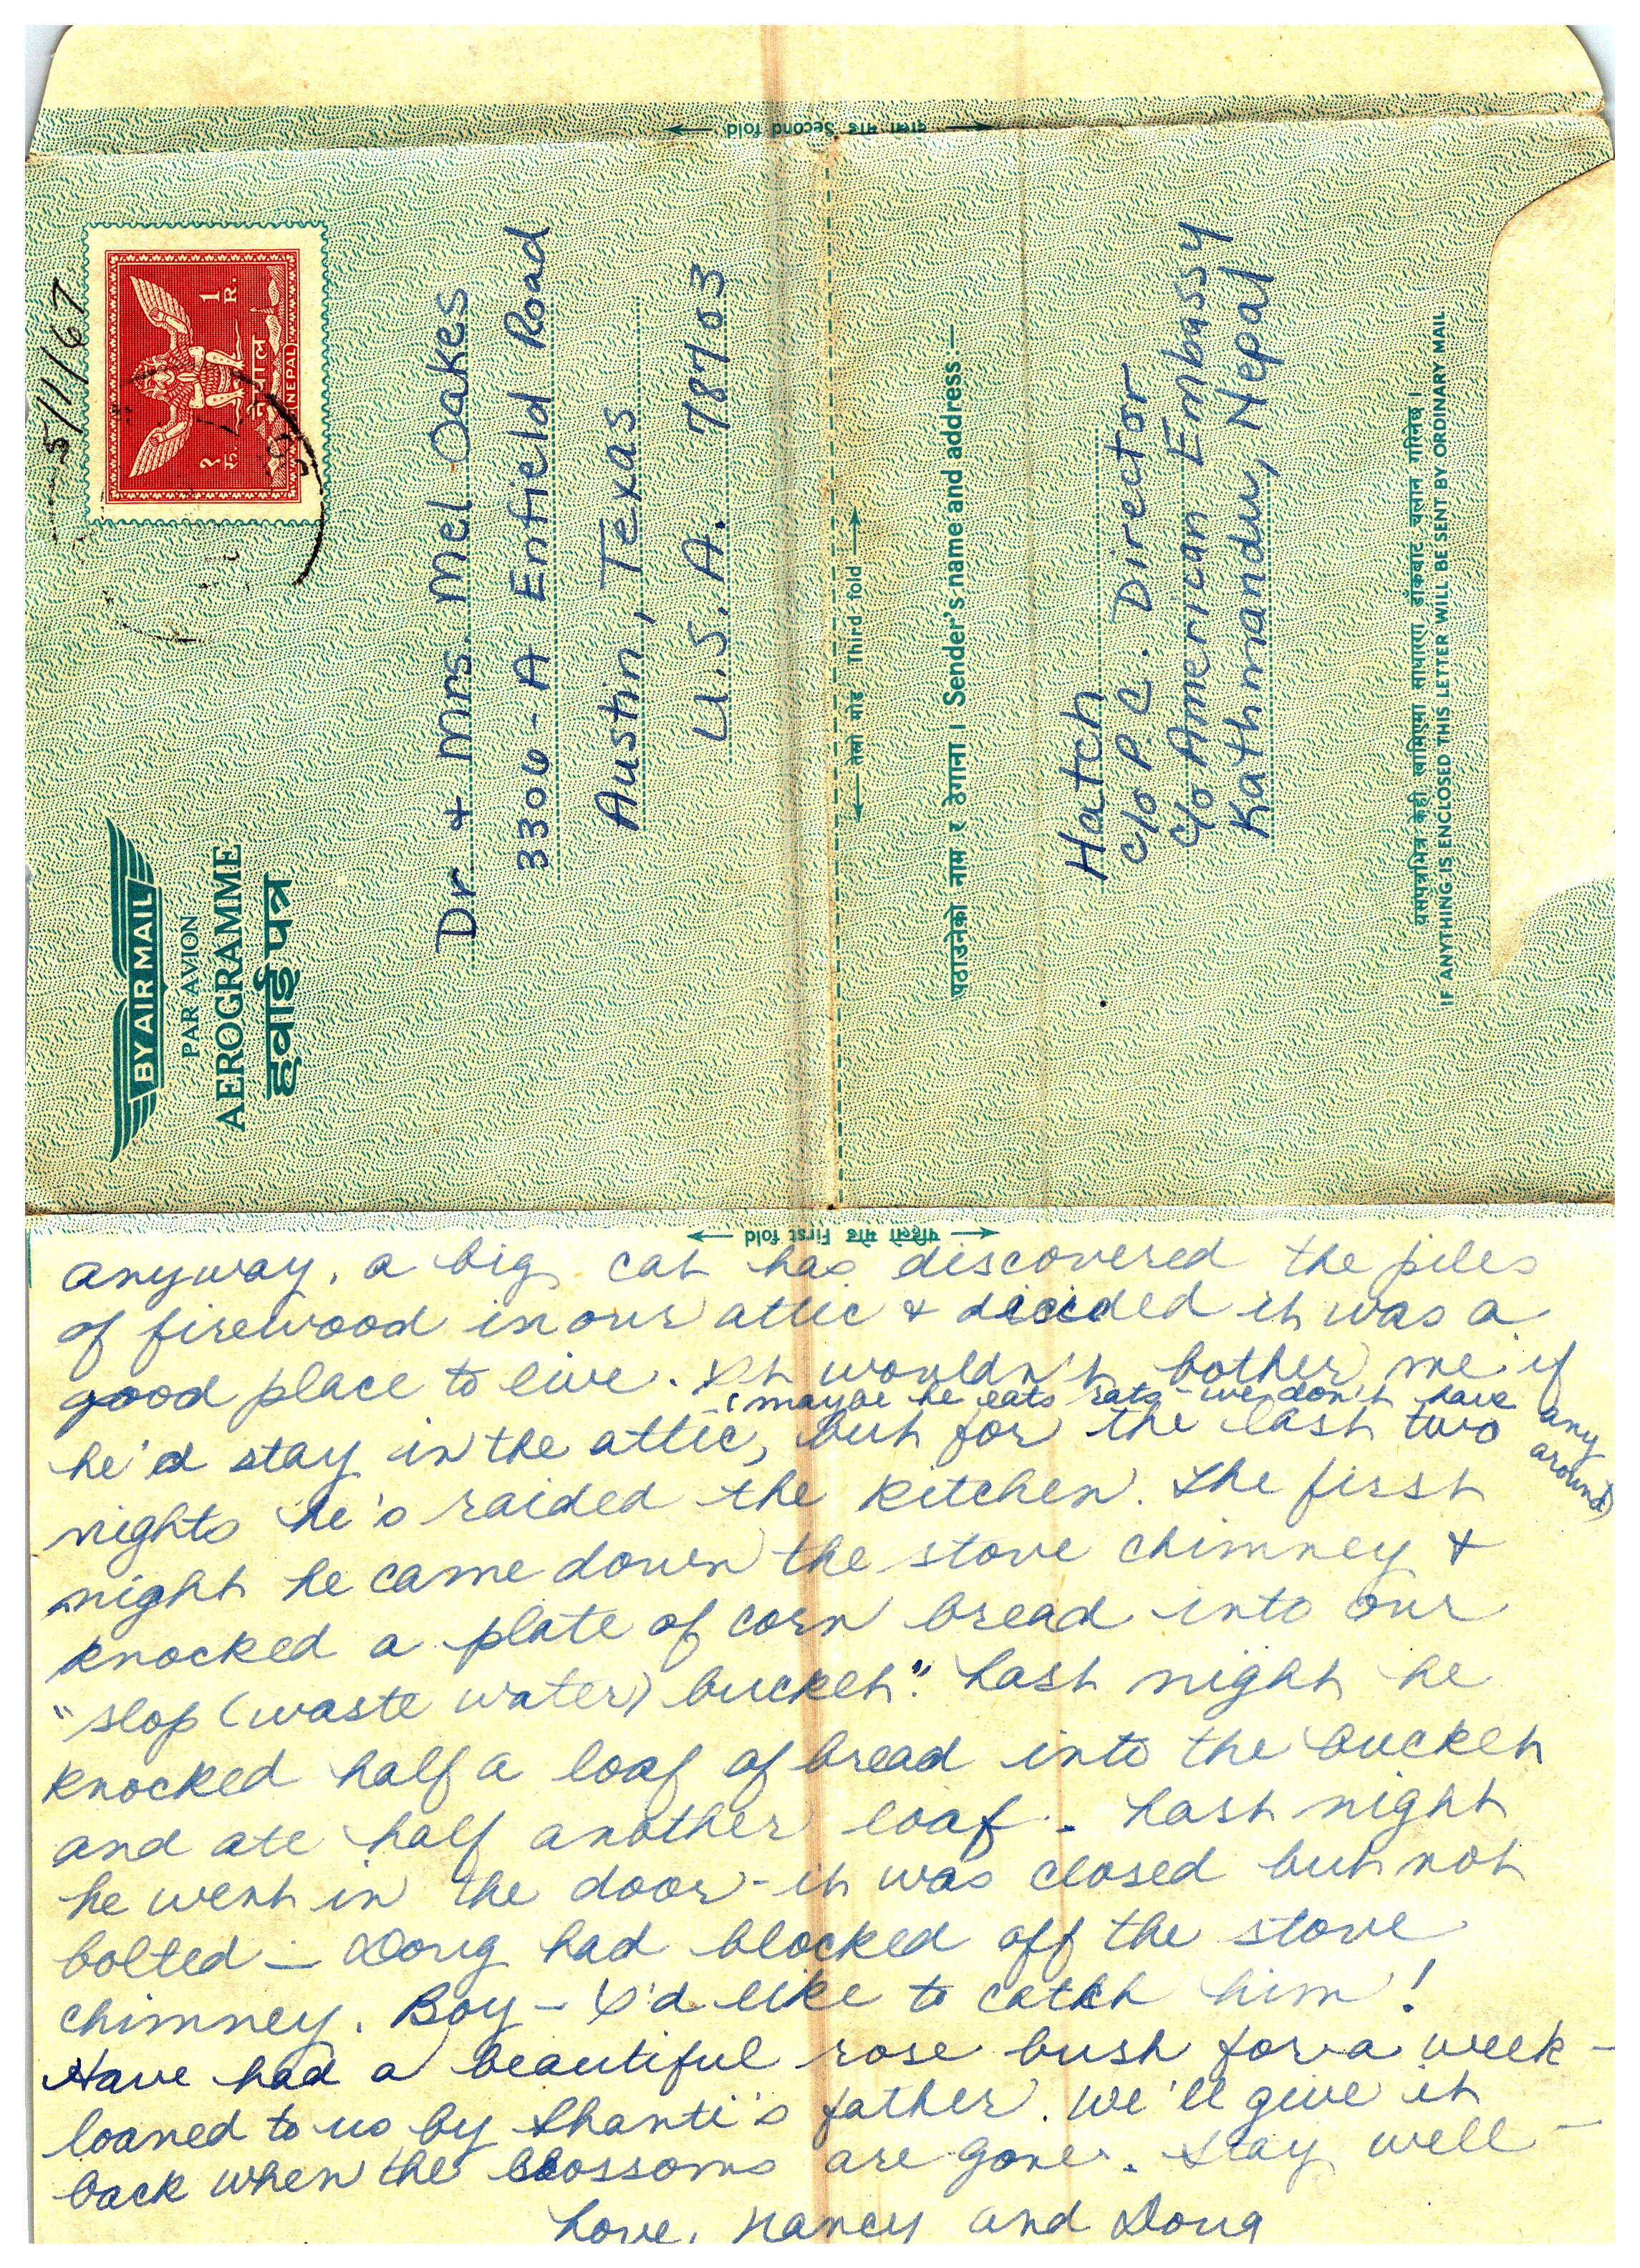 5/1/67
१ रु.
1 R.
नेपाल
NEPAL
BY AIR MAIL
PAR AVION
AEROGRAMME
हवाईपत्र
Dr + Mrs. Mel Oakes
3306-A Enfield Road
Austin, Texas
U.S.A. 78703
दोस्रो मोड Second fold
तेस्रो मोड Third fold
पठाउनेको नाम र ठेगाना । Sender's name and address:—
Hatch
c/o P.C. Director
c/o American Embassy
Kathmandu, Nepal
यसपत्रभित्र केही खामिएमा साधारण डाँकबाट चलान गरिनेछ ।
IF ANYTHING IS ENCLOSED THIS LETTER WILL BE SENT BY ORDINARY MAIL
पहिलो मोड First fold
anyway, a big cat has discovered the piles
of firewood in our attic & decided it was a
good place to live. It wouldn't bother me if
(maybe he eats rats - we don't have any around)
he'd stay in the attic, but for the last two
nights he's raided the kitchen. The first
night he came down the stove chimney &
knocked a plate of corn bread into our
"slop (waste water) bucket." Last night he
knocked half a loaf of bread into the bucket
and ate half another loaf. Last night
he went in the door - it was closed but not
bolted — Doug had blocked off the stove
chimney. Boy - I'd like to catch him!
Have had a beautiful rose bush for a week -
loaned to us by Shanti's father. We'll give it
back when the blossoms are gone. Stay well -
Love, Nancy and Doug